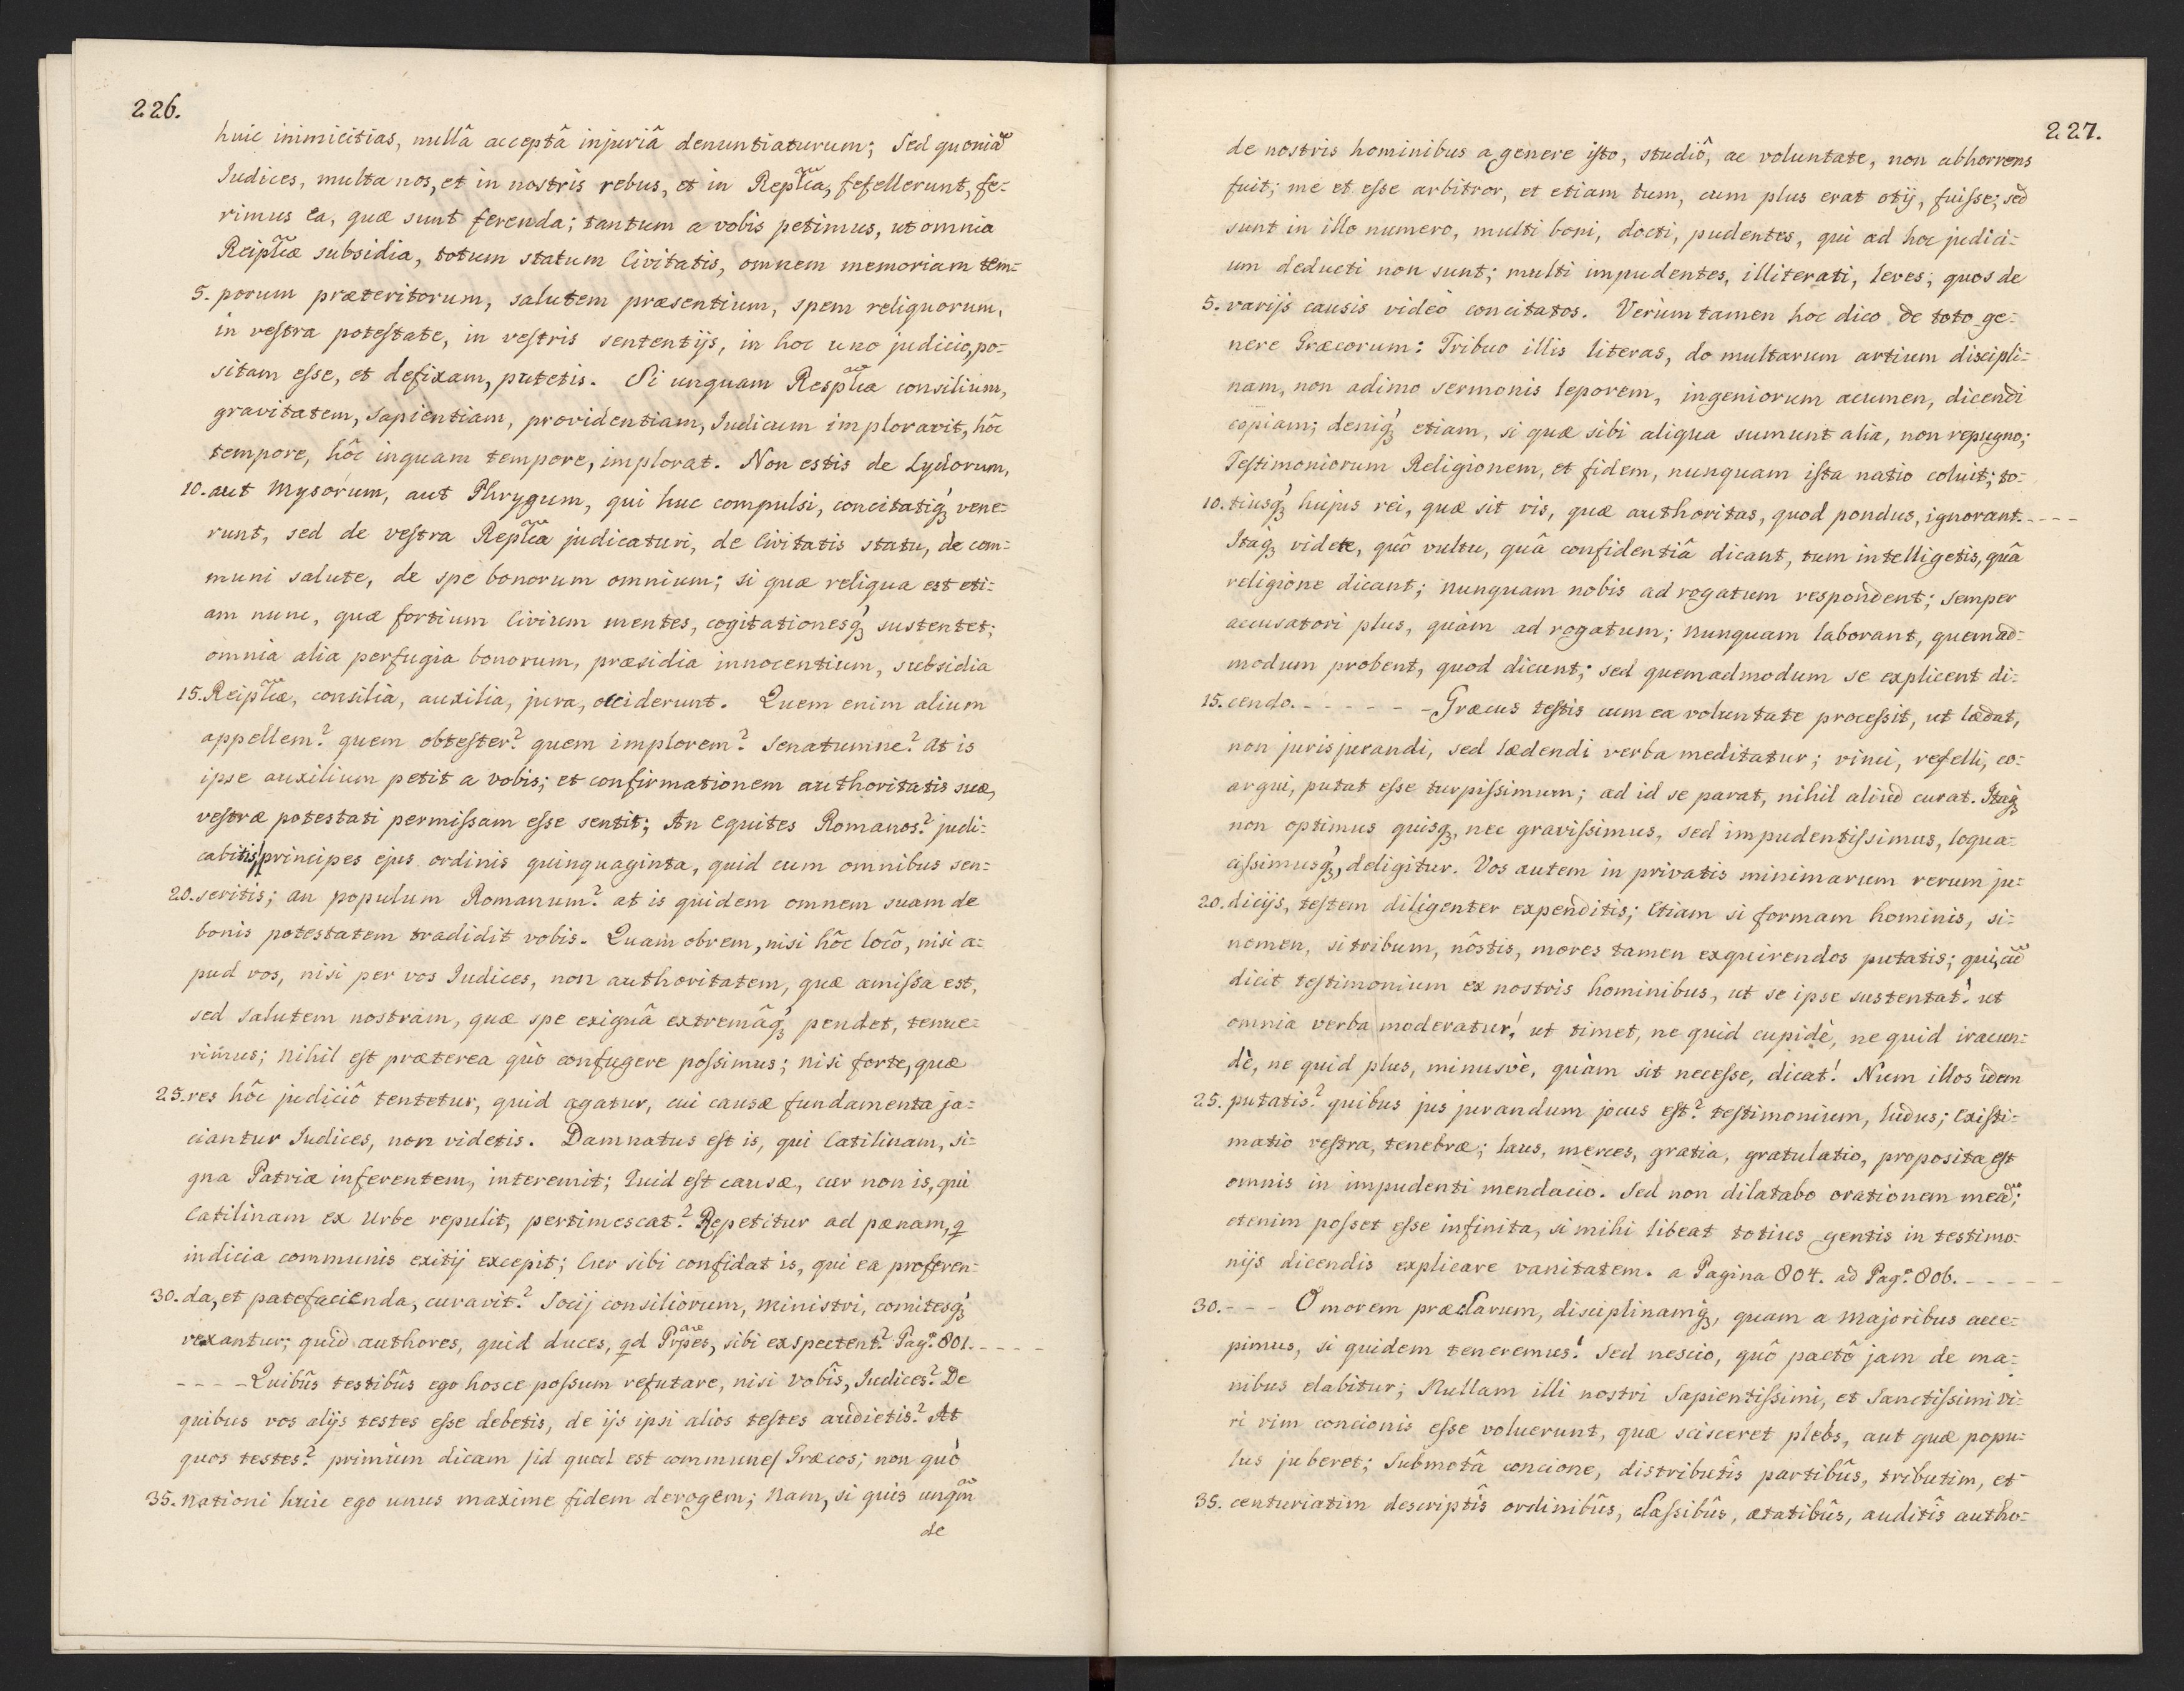 226.
huic inimicitias, nullâ acceptâ injuriâ denuntiaturum; Sed quoniã
Judices, multa nos, et in nostris rebus, et in Repl̃ca, fefellerunt, fe=
rimus ea, quæ sunt ferenda; tantum a vobis petimus, ut omnia
Reipl̃cæ subsidia, totum statum Civitatis, omnem memoriam tem=
5. porum præteritorum, salutem præsentium, spem reliquorum,
in veſtra poteſtate, in veſtris sententijs, in hoc uno judicio, po=
sitam eſse, et defixam, putetis. Si unquam Respl̃ca consilium,
gravitatem, sapientiam, providentiam, Judicum imploravit, hôc
tempore, hôc inquam tempore, implorat. Non estis de Lydorum,
10. aut Mysorum, aut Phrygum, qui huc compulsi, concitatiq́ꝫ vene=
runt, sed de veſtra Repl̃ca judicaturi, de Civitatis statu, de com=
muni salute, de spe bonorum omnium; si quæ reliqua est eti=
am nunc, quæ fortium Civium mentes, cogitationesq́ꝫ sustentet;
omnia alia perfugia bonorum, præsidia innocentium, subsidia
15. Reipl̃cæ, consilia, auxilia, jura, occiderunt. Quem enim alium
appellem? quem obteſter? quem implorem? Senatumne? At is
ipse auxilium petit a vobis; et confirmationem authoritatis suæ,
veſtræ potestati permiſsam eſse sentit; An Equites Romanos? judi=
cabitis, principes ejus ordinis quinquaginta, quid cum omnibus sen=
20. seritis; an populum Romanum? at is quidem omnem suam de
bonis potestatem tradidit vobis. Quam obrem, nisi hôc locô, nisi a=
pud vos, nisi per vos Judices, non authoritatem, quæ amiſsa est,
sed salutem nostram, quæ spe exiguâ extremâq́ꝫ pendet, tenue=
rimus; Nihil eſt præterea quò confugere poſsimus; nisi forte, quæ
25. res hôc judiciô tentetur, quid agatur, cui causæ fundamenta ja=
ciantur Judices, non videtis. Damnatus eſt is, qui Catilinam, si=
gna Patriæ inferentem, interemit; Quid eſt causæ, cur non is, qui
Catilinam ex Urbe repulit, pertimescat? Repetitur ad pœnam, q̃
indicia communis exitij excepit; Cur sibi confidat is, qui ea proferen=
30. da, et patefacienda, curavit? Socij consiliorum, ministri, comitesq́ꝫ
vexantur; quid authores, quid duces, qd Prp̃es, sibi exspectent? Pag.ª 801. - - - -
- - - - Quibûs testibûs ego hosce poſsum refutare, nisi vobîs, Judices? De
quibus vos alijs testes eſse debetis, de ijs ipsi alios teſtes audietis? At
quos testes? primùm dicam /id quod est commune/ Græcos; non quò
35. Nationi huic ego unus maxime fidem derogem; Nam, si quis unqm̃
de
227.
de nostris hominibus a genere iſto, studiô, ac voluntate, non abhorrens
fuit; me et eſse arbitror, et etiam tum, cum plus erat otij, fuiſse; sed
sunt in illo numero, multi boni, docti, pudentes, qui ad hoc judici=
um deducti non sunt; multi impudentes, illiterati, leves; quos de
5. varijs causis videô concitatos. Verùm tamen hoc dico de toto ge=
nere Græcorum: Tribuo illis literas, do multarum artium discipli=
nam, non adimo sermonis leporem, ingeniorum acumen, dicendi
copiam; deniq́ꝫ etiam, si quæ sibi aliqua sumunt alia, non repugno;
Teſtimoniorum Religionem, et fidem, nunquam iſta natio coluit; to=
10. tiusq́ꝫ hujus rei, quæ sit vis, quæ authoritas, quod pondus, ignorant. - - - -
Itaqꝫ videte, quô vultu, quâ confidentiâ dicant, tum intelligetis, quâ
religione dicant; Nunquam nobis ad rogatum respondent; semper
accusatori plus, quàm ad rogatum; Nunquam laborant, quemad=
modum probent, quod dicunt; sed quemadmodum se explicent di=
15. cendo. - - - - - - - Græcus teſtis cum ea voluntate proceſsit, ut lædat,
non jurisjurandi, sed lædendi verba meditatur; vinci, refelli, co=
argui, putat eſse turpiſsimum; ad id se parat, nihil aliud curat. Itaqꝫ
non optimus quisqꝫ, nec graviſsimus, sed impudentiſsimus, loqua=
ciſsimusq́ꝫ, deligitur. Vos autem in privatis minimarum rerum ju=
20. dicijs, teſtem diligenter expenditis; Etiam si formam hominis, si=
nomen, si tribum, nôstis, mores tamen exquirendos putatis; qui, cũ
dicit teſtimonium ex nostris hominibus, ut se ipse sustentat! ut
omnia verba moderatur! ut timet, ne quid cupidè, ne quid iracun=
dè, ne quid plus, minusvè, quàm sit neceſse, dicat! Num illos idem
25. putatis? quibus jus jurandum jocus eſt? teſtimonium, ludus; Exiſti=
matio veſtra, tenebræ; laus, merces, gratia, gratulatio, proposita eſt
omnis in impudenti mendacio. Sed non dilatabo orationem meã;
etenim poſset eſse infinita, si mihi libeat totius gentis in testimo=
nijs dicendis explicare vanitatem. a Pagina 804. ad Pag.ª 806. - - - - -
30. - - - O morem præclarum, disciplinamq́ꝫ, quam a Majoribus acce=
pimus, si quidem teneremus! Sed nescio, quô pactô jam de ma=
nibus elabitur; Nullam illi nostri Sapientiſsimi, et Sanctiſsimi Vi=
ri vim concionis eſse voluerunt, quæ scisceret plebs, aut quæ popu=
lus juberet; Submotâ concione, distributîs partibûs, tributim, et
35. centuriatim descriptîs ordinibûs, claſsibûs, ætatibûs, auditîs autho=